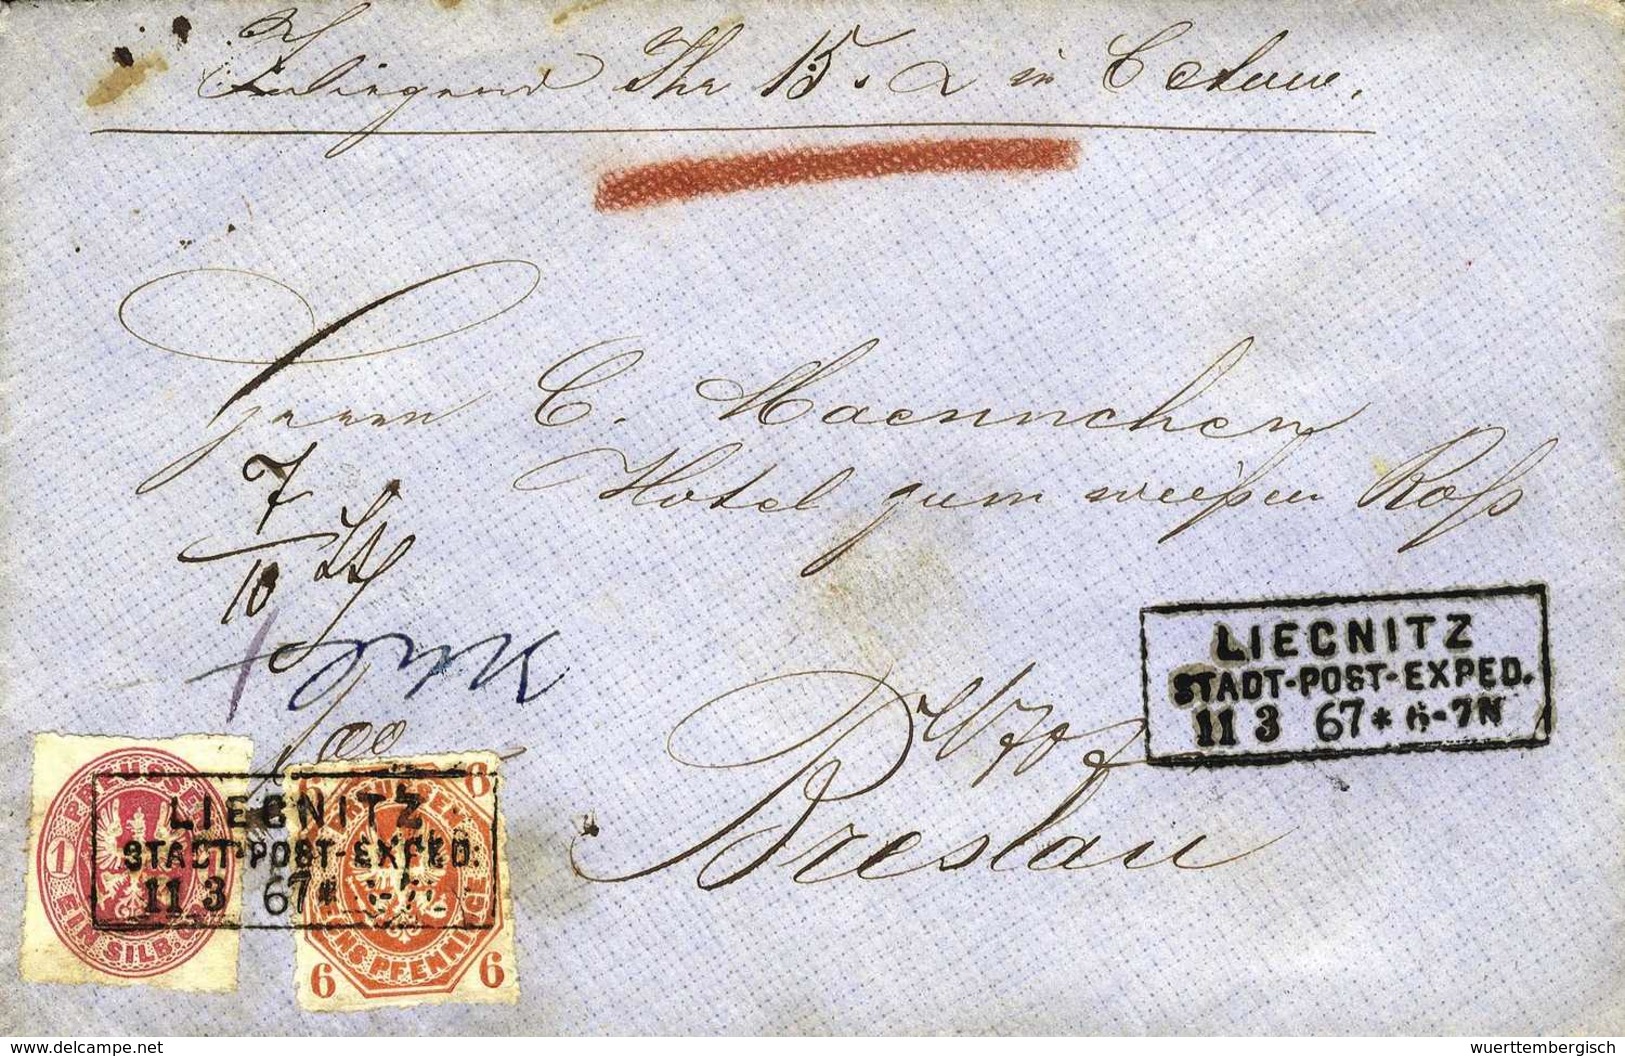 Inliegend Thr 15. in
Herrn C. Maennchen
Hotel zum weißen Roß
7
10
Breslau
LIEGNITZ
STADT-POST-EXPED.
11 3 67 * 6-7N
LIEGNITZ
STADT-POST-EXPED.
11 3 67 *
1
EIN SILB.
6
6
6
6
PFENNIGE
delcampe.net
wuerttembergisch